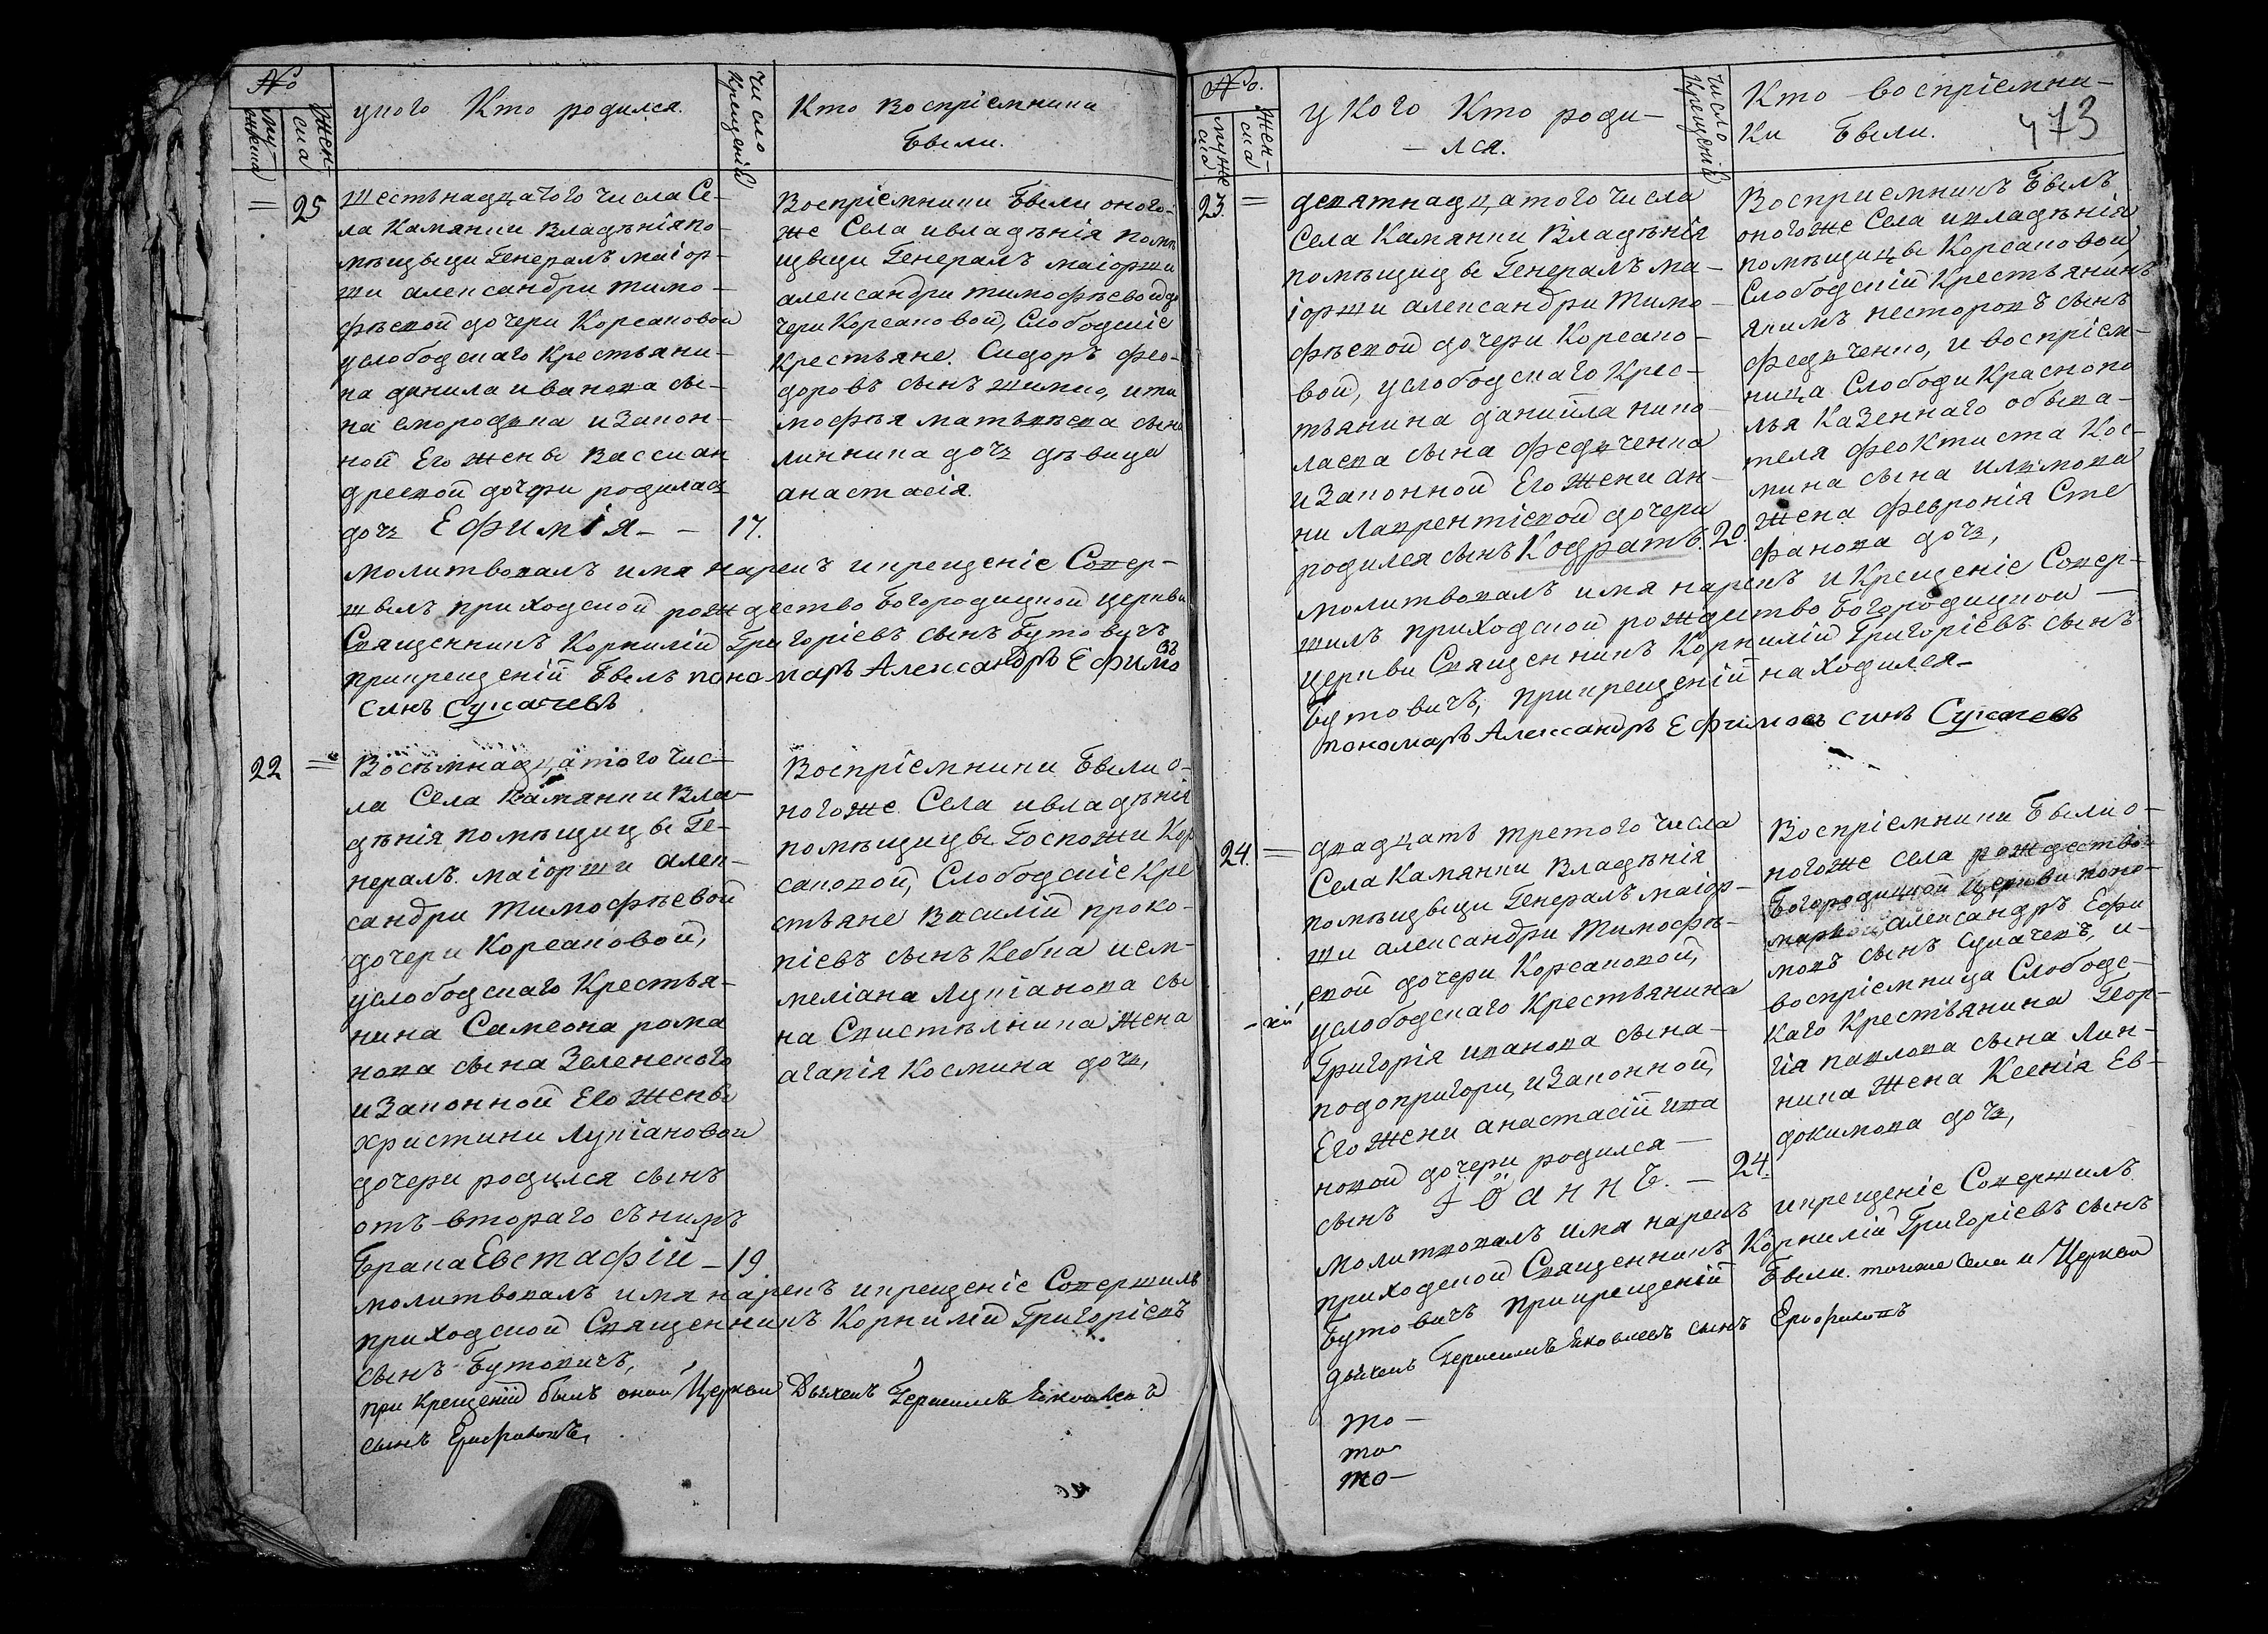 №
муженска
женска
укого Кто родился.
число крещеній
Кто Воспріемники
Были.
= 25
Шестьнадцатого числа Се-
ла Камянки Владѣнія по-
мѣщыци Генералъ маіор-
ши александри тимо-
фѣевой дочери Корсановой
услободскаго Крестьяни-
на данила иванова сы-
на смородвна и Закон-
ной Его жены Вассиан
дреевой дочери родилась
дочь Ефимія - - 17.
Воспріемники Были оного-
же Села ивладѣнія помѣ
щыци Генералъ маіорши
александри тимофѣевой до
чери Корсановой, Слободскіе
Крестьяне. Сидоръ Фео-
доровъ сынъ шимко, и ти
мофѣя матвѣева сына
линника дочь дѣвица
анастасія.
молитвовалъ имя нарекъ и крещеніе Совер-
шылъ приходской рождество Богородицкой церкви
Священникъ Корнилій Григоріевъ сынъ Бутовичъ
прикрещеній Былъ пономарь Александръ Ефимовъ
синъ Сукачевъ
22 =
Восѣмнадцатого чис-
ла Села Камянки Вла-
дѣнія помѣщицы Ге-
нералъ маіорши алек-
сандри Тимофѣевой
дочери Корсановой,
услободскаго Крестья-
нина Самеона рома
нова сына Зеленского
и Законной Его жены
Христини Лукіановой
дочери родился сынъ
отъ втораго сънимъ
Брака Евстафій - 19
Воспріемники Были о-
ногоже Села ивладѣнія
помѣщицы Госпожи Кор
сановой, Слободскіе Кре
стьяне Василій проко-
піевъ сынъ Кебка и ем-
меліана Лукіанова сы
на Свистѣлника жена
агапія Космина дочь,
молитвовалъ имя нарекъ икрещеніе Совершилъ
приходской Священникъ Корнилій Григоріевъ
сынъ Бутовичъ,
при Крещеніи былъ оной Церкви Дьячекъ Герасимъ Яковлевъ
сынъ Ерофаловъ,
№.
мужеска
женска
у Кого Кто роди-
- лся.
число крещеній
Кто воспріемни-
ки Были.
473
23. =
девятнадцатого числа
Села Камянки Владѣнія
помѣщицы Генералъ ма-
іорши александри Тимо-
фѣевой дочери Корсано-
вой, услободскаго Крес-
тьянина данійла нико-
лаева сына Федвченка
и Законной Его жени ан-
ни лаврентіевой дочери
родился сынъ Кодратъ. 20.
Восприемникъ Былъ
оногоже Села ивладѣнія
помѣщицы Корсановой,
Слободскій Крестьянинъ
якимъ несторовъ сынъ
Федвченко, и воспріем-
ница Слободи Краснопо
лья Казенного обыва-
теля Феоктиста Кос-
мина сына
жена Февронія Сте
фанова дочь,
молитвовалъ имя нарекъ и Крещеніе Совер-
шилъ приходской рождество Богородицкой
церкви Священникъ Корнилій Григоріевъ сынъ
Бутовичъ, прикрещеній находился
пономарь Александръ Ефимовъ синъ Сукачевъ
24. =
двадцать третого числа
Села Камянки Владѣнія
помѣщыци Генералъ маіор-
ши александри Тимофѣ-
евой дочери Корсановой,
услободскаго Крестьянина
Григорія иванова сына
подопригори, и Законной
Его жени анастасій ива
новой дочери родился
сынъ Іоаннъ. - 24.
Воспріемники Были о-
ногоже села рождество
Богородицкой церкви поно-
марь александръ Ефи
мовъ сынъ Сукачевъ, и-
воспріемница Слободс-
каго Крестьянина Геор-
гія павлова сына Лин-
ника жена Ксенія Ев-
докимова дочь,
молитвовалъ имя нарекъ икрещеніе Совершилъ
приходской Священникъ Корнилій Григоріевъ сынъ
Бутовичъ прикрещеній Были. тогоже села и Церкви
дьячекъ Герасимъ Яковлевъ сынъ Ерофаловъ
то -
то
то -